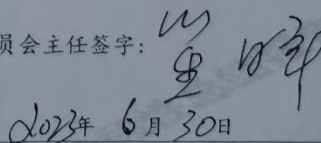 员会主任签字：
2023年 6月30日